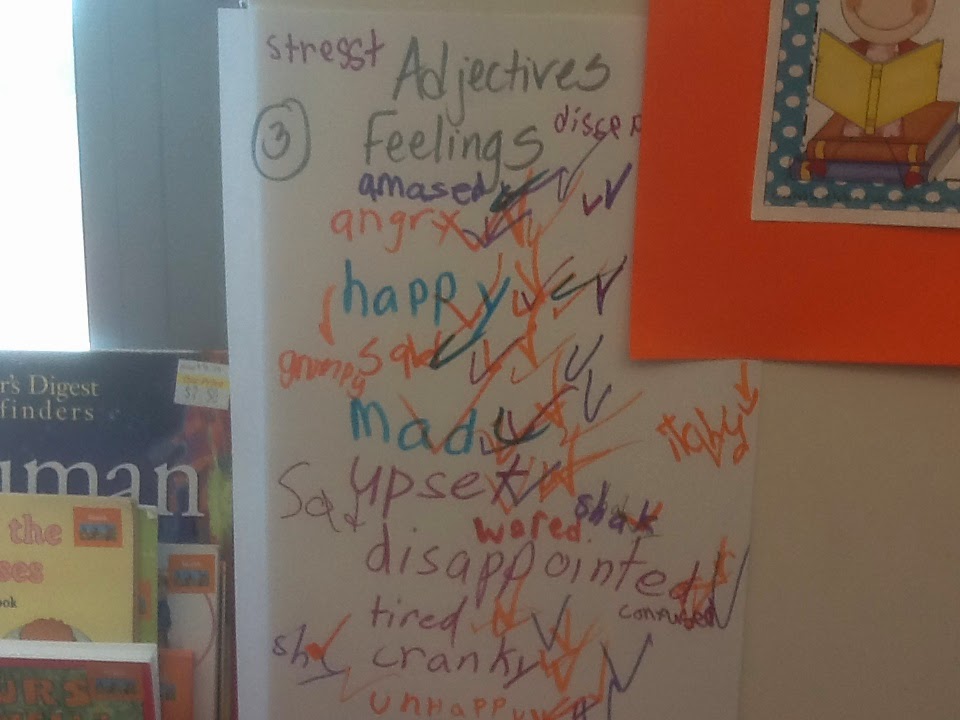 stresst
Adjectives
3
Feelings
amased
angry
happy
grumpy
sad
mad
itaby
Sad
upset
shak
wored
disappointed
confused
tired
cranky
unhappy
r's Digest
finders
uman
the
ses
ook
URS